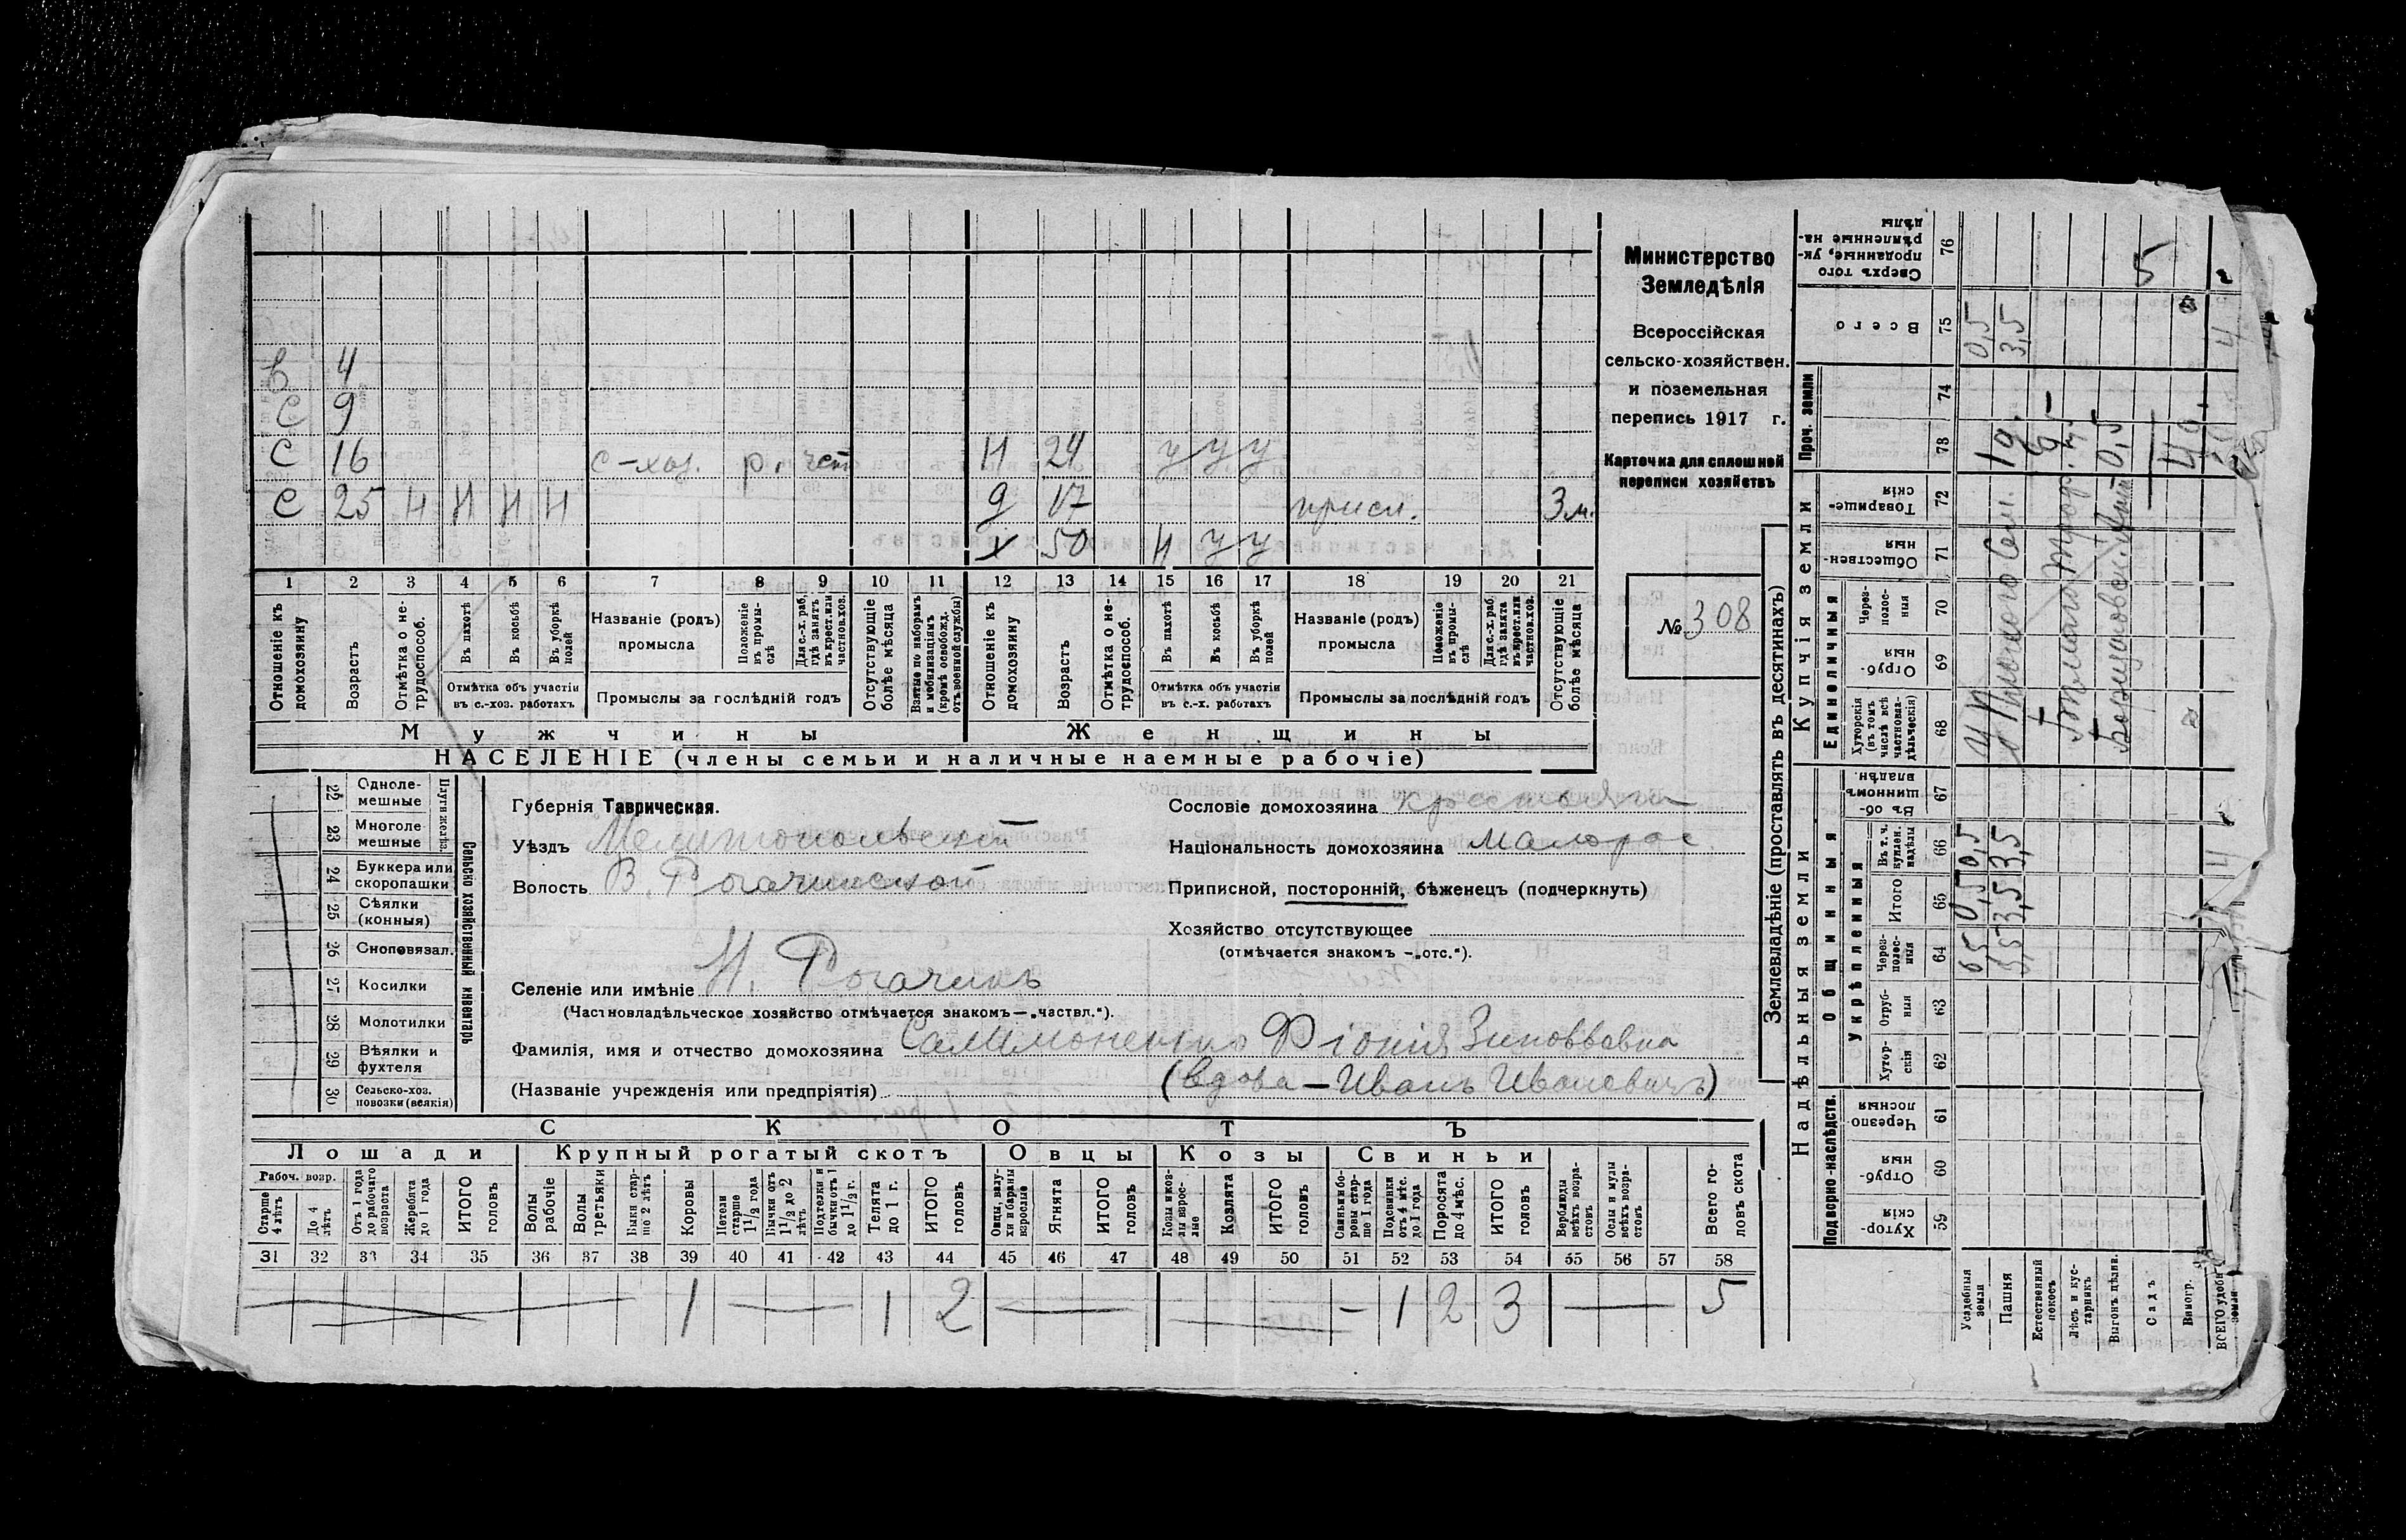 Министерство
Земледѣлія
Всероссійская
сельско-хозяйствен.
и поземельная
перепись 1917 г.
Карточка для сплошной
переписи хозяйствъ
№ 308
в 4
С 9
С 16 с-хоз. р. Н 24 у у у
С 25 Н Н Н Н 17 3 м.
х 50 Н у у
1 2 3 4 5 6 7 8 9 10 11 12 13 14 15 16 17 18 19 20 21
Отношеніе къ домохозяину
Возрастъ
Отмѣтка о нетрудоспособ.
Въ пахотѣ
Въ косьбѣ
Въ уборкѣ полей
Отмѣтка объ участіи въ с.-хоз. работахъ
Названіе (родъ) промысла
Положеніе въ промыслѣ
Для с.-х. раб. гдѣ занятъ въ крест. или частнов. хоз.
Промыслы за послѣдній годъ
Отсутствующіе болѣе мѣсяца
Взятые по наборамъ и мобилизаціямъ (кромѣ освобожд. отъ военной службы)
Отношеніе къ домохозяину
Возрастъ
Отмѣтка о нетрудоспособ.
Въ пахотѣ
Въ косьбѣ
Въ уборкѣ полей
Отмѣтка объ участіи въ с.-х. работахъ
Названіе (родъ) промысла
Положеніе въ промыслѣ
Для с.-х. раб. гдѣ занята въ крест. или частнов. хоз.
Промыслы за послѣдній годъ
Отсутствующіе болѣе мѣсяца
Мужчины Женщины
НАСЕЛЕНІЕ (члены семьи и наличные наемные рабочіе)
Сельско хозяйственный инвентарь
Плуги желѣз.
22 Одноле-мешные
23 Многоле-мешные
24 Буккера или скоропашки
25 Сѣялки (конныя)
26 Сноповязал.
27 Косилки
28 Молотилки
29 Вѣялки и фухтеля
30 Сельско-хоз. повозки (всякія)
Губернія Таврическая.
Уѣздъ Мелитопольский
Волость В. Рогачикской
Селеніе или имѣніе Н. Рогачикъ
(Частновладѣльческое хозяйство отмѣчается знакомъ — „частвл.“).
Фамилія, имя и отчество домохозяина Зиновьевна
(Названіе учрежденія или предпріятія) (вдова – Иванъ Ивановичъ)
Сословіе домохозяина
Національность домохозяина малорос
Приписной, посторонній, бѣженецъ (подчеркнуть)
Хозяйство отсутствующее
(отмѣчается знакомъ — „отс.“).
СКОТЪ
Лошади Крупный рогатый скотъ Овцы Козы Свиньи
Рабоч. возр.
Старше 4 лѣтъ
До 4 лѣтъ
Отъ 1 года до рабочаго возраста
Жеребята до 1 года
ИТОГО головъ
Волы рабочіе
Волы третьяки
Быки старше 2 лѣтъ
Коровы
Нетели старше 1 1/2 года
Бычки отъ 1 1/2 до 2 лѣтъ
Подтелки и бычки отъ 1 до 1 1/2 г.
Телята до 1 г.
ИТОГО головъ
Овцы, валухи и бараны взрослые
Ягнята
ИТОГО головъ
Козы и козлы взрослые
Козлята
ИТОГО головъ
Свиньи и боровы старше 1 года
Подсвинки отъ 4 мѣс. до 1 года
Поросята до 4 мѣс.
ИТОГО головъ
Верблюды всѣхъ возрастовъ
Ослы и мулы всѣхъ возрастовъ
Всего головъ скота
31 32 33 34 35 36 37 38 39 40 41 42 43 44 45 46 47 48 49 50 51 52 53 54 55 56 57 58
1 — 1 2 — — 1 2 3 — 5
Землевладѣніе (проставлять въ десятинахъ)
Надѣльныя земли
Купчія земли
Проч. земли
Подворно-наслѣдств.
Общинныя
Укрѣпленныя
Единоличныя
59 Хуторскія
60 Отрубныя
61 Черезполосныя
62 Хуторскія
63 Отрубныя
64 Черезполосныя
65 Итого
66 Въ т. ч. куплен. надѣлы
67 Въ общинномъ владѣн.
68 Хуторскія (въ томъ числѣ всѣ частновладѣльческія)
69 Отрубныя
70 Черезполосныя
71 Общественныя
72 Товарищескія
73
74
75 Всего
76 Сверхъ того проданные, укрѣпленные надѣлы
Усадебныя земли 0,5 0,5 0,5 0,5
Пашня 3,5 3,5 3,5 3,5
Естественный покосъ
Лѣсъ и кустарникъ
Выгонъ цѣлина.
Садъ
Виногр.
ВСЕГО удобн. земли 4 4